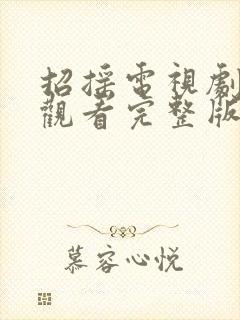 招搖電視劇
觀看完整版
慕容心悦